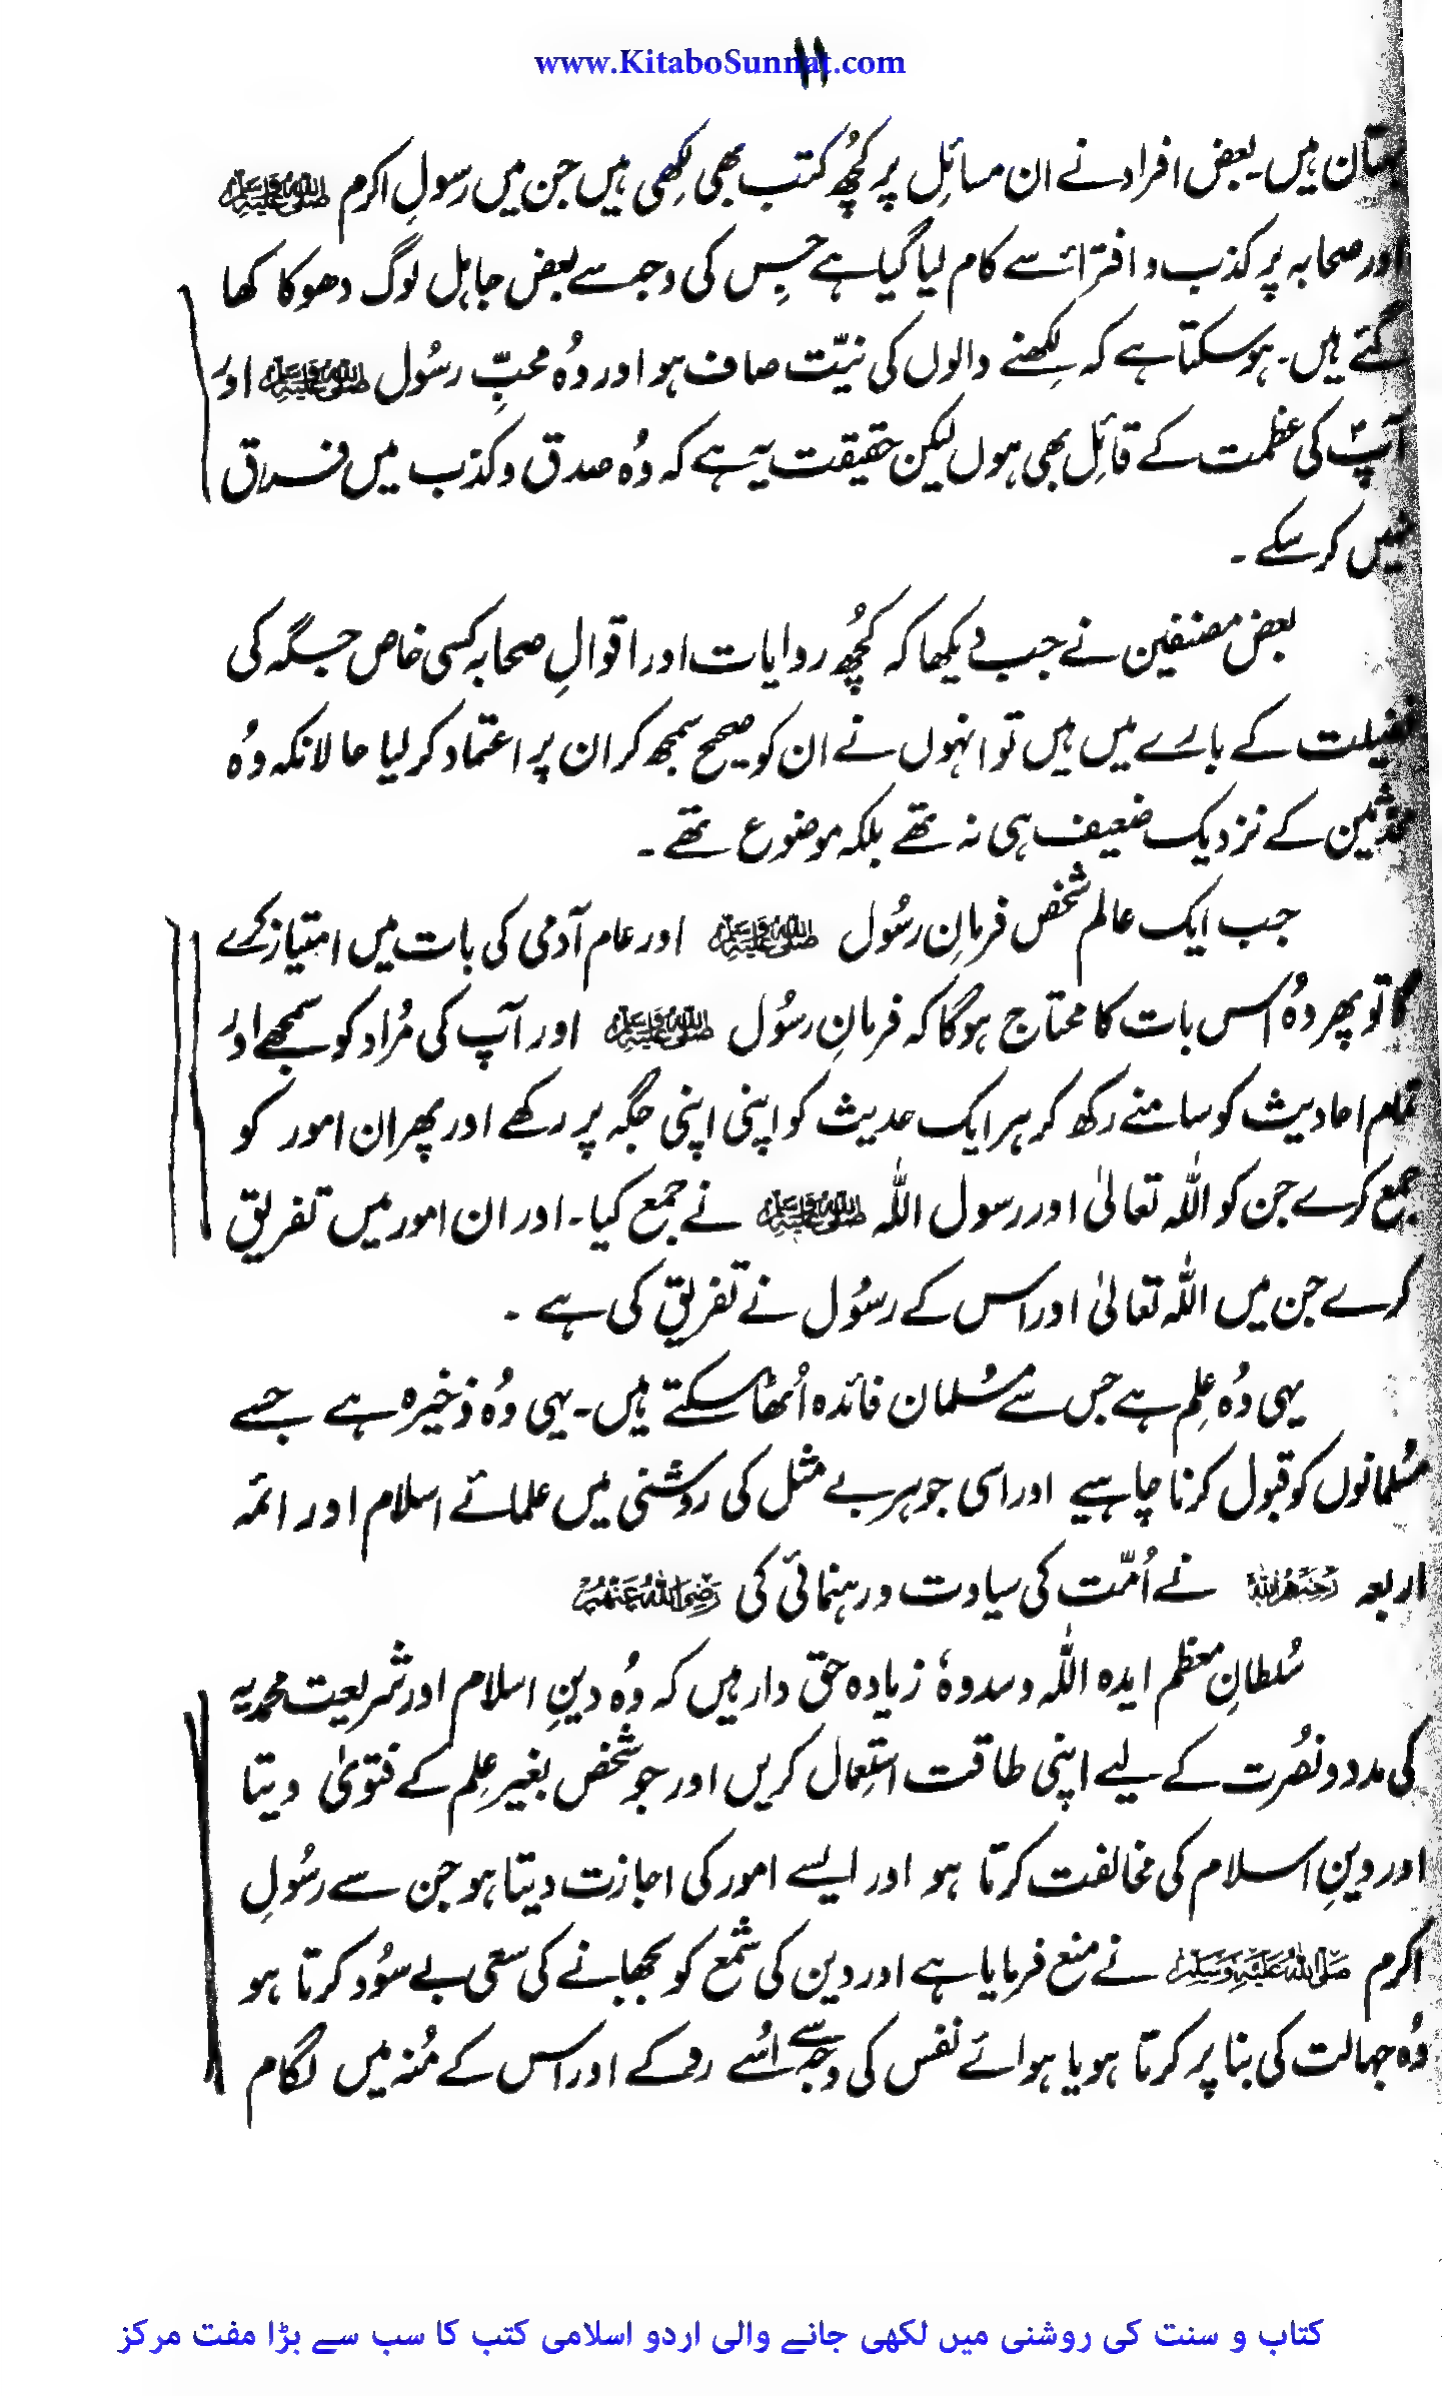 www.KitaboSunnat.com
۱۱
بہتان ہیں۔ بعض افراد نے ان مسائل پر کچُھ کتب بھی لکِھی ہیں جن میں رسولِ اکرم ﷺ
اور صحابہ پر کذب و افترا سے کام لیا گیا ہے جِس کی وجہ سے بعض جاہل لوگ دھوکا کھا
گئے ہیں۔ ہو سکتا ہے کہ لِکھنے والوں کی نیّت صاف ہو اور وُہ محبِّ رسُول ﷺ اور
آپؐ کی عظمت کے قائِل بھی ہوں لیکن حقیقت یہ ہے کہ وُہ صدق و کذب میں فرق
نہیں کر سکے۔
بعض مصنفین نے جب دیکھا کہ کچُھ روایات اور اقوالِ صحابہ کسی خاص جگہ کی
فضیلت کے بارے میں ہیں تو انہوں نے ان کو صحیح سمجھ کر ان پر اعتماد کر لیا حالانکہ وُہ
محدثین کے نزدیک ضعیف ہی نہ تھے بلکہ موضوع تھے۔
جب ایک عالم شخص فرمانِ رسُول ﷺ اور عام آدمی کی بات میں امتیاز کرے
گا تو پھر وُہ اس بات کا محتاج ہوگا کہ فرمانِ رسُول ﷺ اور آپ کی مُراد کو سمجھے اور
تمام احادیث کو سامنے رکھ کر ہر ایک حدیث کو اپنی اپنی جگہ پر رکھے اور پھر ان امور کو
جمع کرے جن کو اللہ تعالیٰ اور رسول اللہ ﷺ نے جمع کیا۔ اور ان امور میں تفریق
کرے جن میں اللہ تعالیٰ اور اس کے رسُول نے تفریق کی ہے۔
یہی وُہ عِلم ہے جس سے مسُلمان فائدہ اُٹھا سکتے ہیں۔ یہی وُہ ذخیرہ ہے جسے
مسُلمانوں کو قبول کرنا چاہیے اور اسی جوہر بے مثل کی روشنی میں علمائے اسلام اور ائمہ
اربعہ رَحِمَهُمُ اللہُ نے اُمّت کی سیادت و رہنمائی کی رَضِیَ اللہُ عَنْهُمْ
سُلطانِ معظم ایدہ اللہ وسددہٗ زیادہ حق دار ہیں کہ وُہ دینِ اسلام اور شریعت محمدیہ
کی مدد و نصُرت کے لیے اپنی طاقت استِعمال کریں اور جو شخص بغیر عِلم کے فتویٰ دیتا
اور دینِ اسلام کی مخالفت کرتا ہو اور ایسے امور کی اجازت دیتا ہو جن سے رسُولِ
اکرم صَلَّی اللہُ عَلَیْهِ وَسَلَّمَ نے منع فرمایا ہے اور دین کی شمع کو بجھانے کی سعی بے سوُد کرتا ہو
وُہ جہالت کی بنا پر کرتا ہو یا ہوائے نفس کی وجہ سے اُسے روکے اور اس کے مُنہ میں لگام
کتاب و سنت کی روشنی میں لکھی جانے والی اردو اسلامی کتب کا سب سے بڑا مفت مرکز